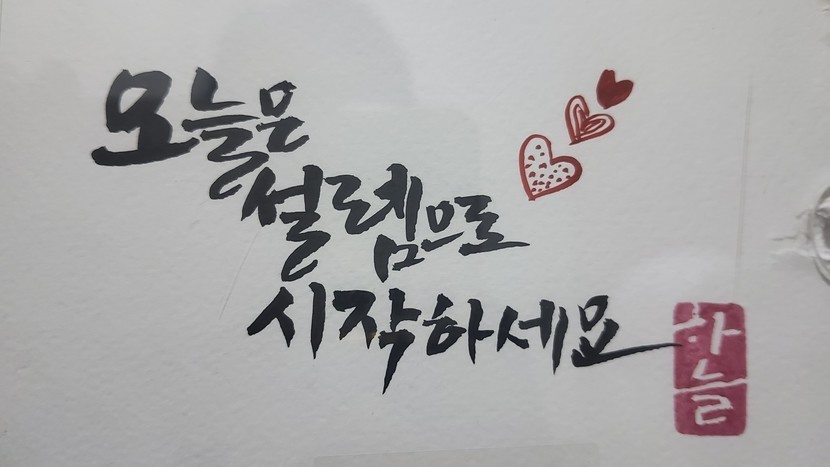 오늘은
설렘으로
시작하세요
하늘